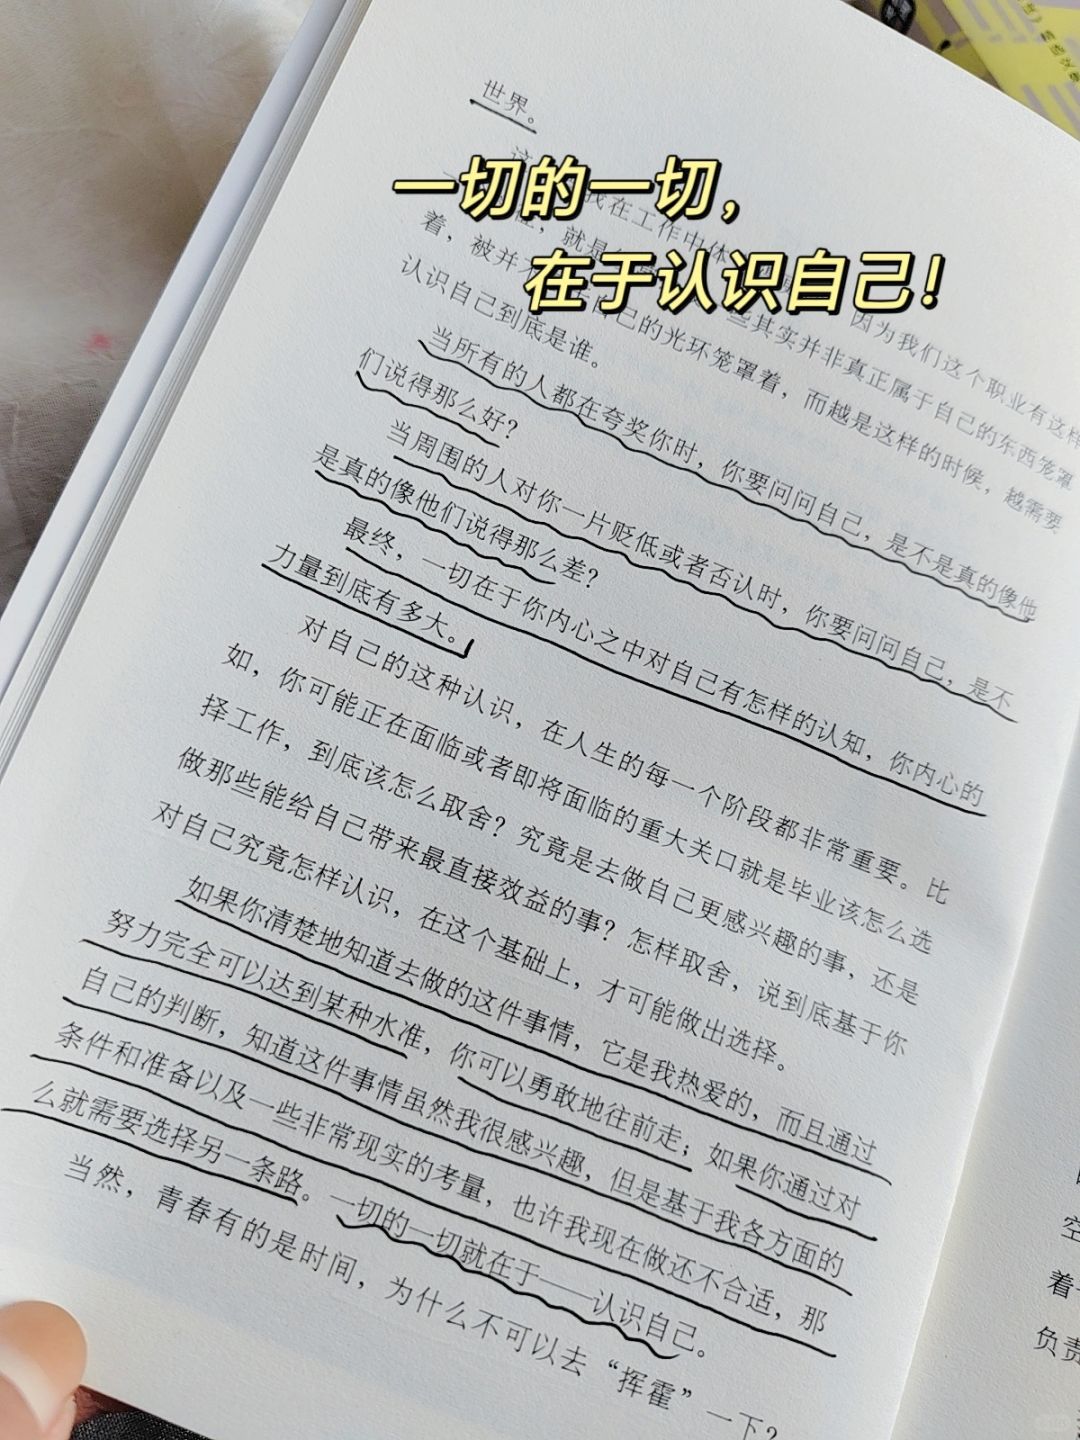 一切的一切，
在于认识自己！
世界。
这 我在工作中体 因为我们这个职业有这样
就是 些其实并非真正属于自己的东西笼罩
着，被并 自己的光环笼罩着，而越是这样的时候，越需要
认识自己到底是谁。
当所有的人都在夸奖你时，你要问问自己，是不是真的像他
们说得那么好？
当周围的人对你一片贬低或者否认时，你要问问自己，是不
是真的像他们说得那么差？
最终，一切在于你内心之中对自己有怎样的认知，你内心的
力量到底有多大。
对自己的这种认识，在人生的每一个阶段都非常重要。比
如，你可能正在面临或者即将面临的重大关口就是毕业该怎么选
择工作，到底该怎么取舍？究竟是去做自己更感兴趣的事，还是
做那些能给自己带来最直接效益的事？怎样取舍，说到底基于你
对自己究竟怎样认识，在这个基础上，才可能做出选择。
如果你清楚地知道去做的这件事情，它是我热爱的，而且通过
努力完全可以达到某种水准，你可以勇敢地往前走；如果你通过对
自己的判断，知道这件事情虽然我很感兴趣，但是基于我各方面的
条件和准备以及一些非常现实的考量，也许我现在做还不合适，那
么就需要选择另一条路。一切的一切就在于——认识自己。
当然，青春有的是时间，为什么不可以去“挥霍”一下？
空
着
负责